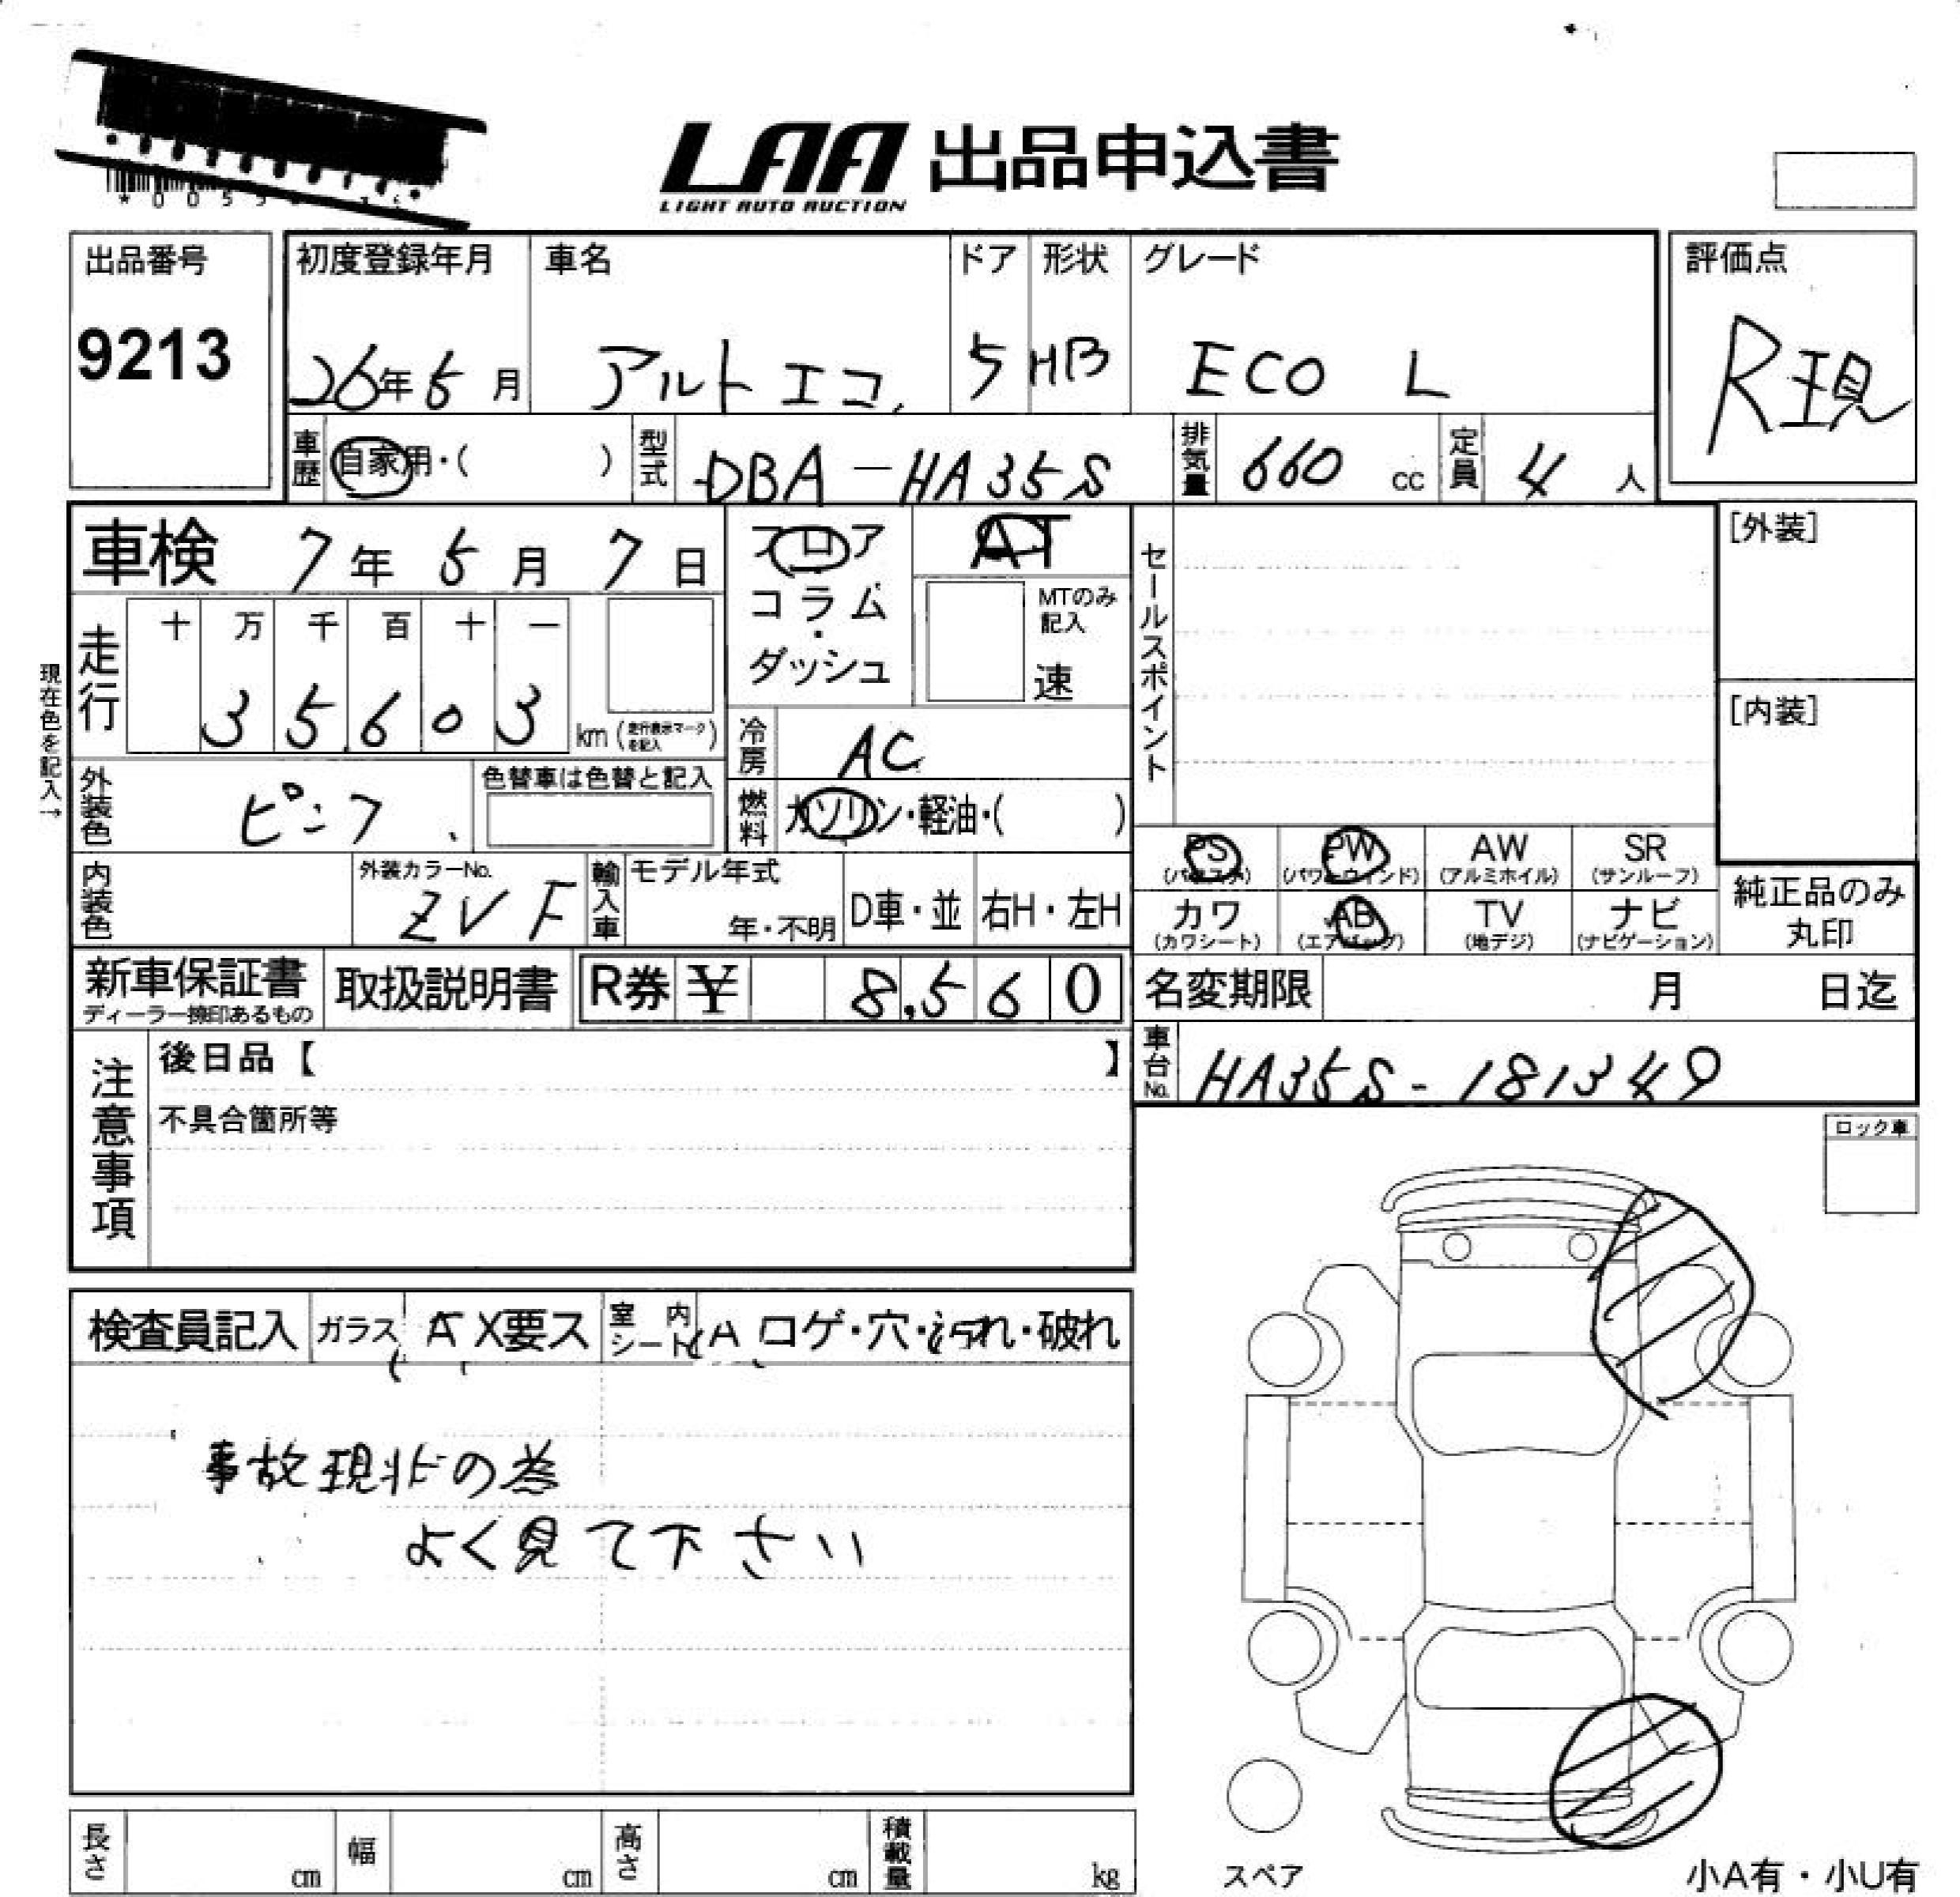 LAA 出品申込書
LIGHT AUTO AUCTION
出品番号
9213
初度登録年月 車名 ドア 形状 グレード
26年5月 アルトエコ 5 HB ECO L
評価点
R現
車歴 自家用・( ) 型式 DBA-HA35S 排気量 660 cc 定員 4人
車検 7年5月7日
フロア
コラム・
ダッシュ
AT
MTのみ
記入
速
セールスポイント
[外装]
[内装]
現在色を記入→
走行 十 万 千 百 十 一
3 5 6 0 3 km (走行表示マークを記入)
冷房 AC
外装色 ピンク 色替車は色替と記入
燃料 ガソリン・軽油・( )
内装色 外装カラーNo. ZVF
輸入車 モデル年式 年・不明 D車・並 右H・左H
PS PW AW SR
(パワステ) (パワーウィンド) (アルミホイル) (サンルーフ)
カワ AB TV ナビ
(カワシート) (エアバッグ) (地デジ) (ナビゲーション)
純正品のみ
丸印
新車保証書 取扱説明書 R券 ¥ 8,560
ディーラー捺印あるもの
名変期限 月 日迄
車台No. HA35S-181349
注意事項
後日品【 】
不具合箇所等
ロック車
検査員記入 ガラス A X要ス 室内シート A コゲ・穴・汚れ・破れ
事故現状の為
よく見て下さい
長さ cm 幅 cm 高さ cm 積載量 kg
スペア
小A有・小U有